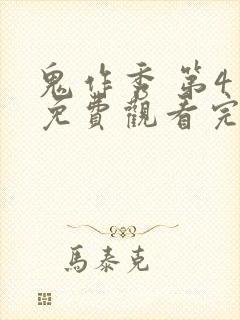 鬼作秀 第4
免費觀看完
馬泰克